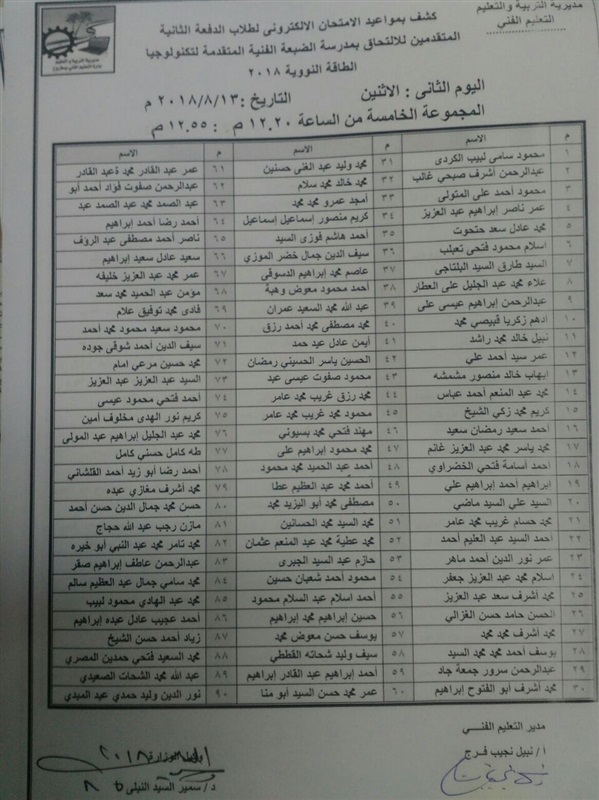 مديرية التربية والتعليم
التعليم الفني
كشف بمواعيد الامتحان الالكترونى لطلاب الدفعة الثانية
المتقدمين للالتحاق بمدرسة الضبعة الفنية المتقدمة لتكنولوجيا
الطاقة النووية ٢٠١٨
اليوم الثانى : الاثنين التاريخ :٢٠١٨/٨/١٣ م
المجموعة الخامسة من الساعة ١٢.٢٠ م : ١٢.٥٥ م
م الاسم م الاسم م الاسم
١ محمود سامى لبيب الكردى ٣١ محمد وليد عبد الغنى حسنين ٦١ عمر عبد القادر محمد عبد القادر
٢ عبدالرحمن أشرف صبحي غالب ٣٢ محمد خالد محمد سلام ٦٢ عبدالرحمن صفوت فؤاد أحمد أبو
٣ محمود أحمد على المتولى ٣٣ أمجد عمرو محمد محمد ٦٣ عبد الصمد محمد عبد الصمد عبد
٤ عمر ناصر إبراهيم عبد العزيز ٣٤ كريم منصور إسماعيل إسماعيل ٦٤ أحمد رضا أحمد إبراهيم
٥ محمد عادل سعد حتحوت ٣٥ أحمد هاشم فوزى السيد ٦٥ ناصر أحمد مصطفى عبد الرؤف
٦ اسلام محمود فتحى تعيلب ٣٦ سيف الدين جمال خضر الموزي ٦٦ سعيد عادل سعيد إبراهيم
٧ السيد طارق السيد البلتاجى ٣٧ عاصم محمد إبراهيم الدسوقى ٦٧ عمر محمد عبد العزيز خليفه
٨ علاء محمد عبد الجليل على العطار ٣٨ أحمد محمود معوض وهبة ٦٨ مؤمن عبد الحميد محمد سعد
٩ عبدالرحمن إبراهيم عيسى على ٣٩ عبد الله محمد السعيد عمران ٦٩ فادى محمد توفيق علام
١٠ ادهم زكريا قبيصي محمد ٤٠ محمد مصطفى محمد أحمد رزق ٧٠ محمود سعيد محمود محمد أحمد
١١ نبيل خالد محمد راشد ٤١ أيمن عادل عيد حمد ٧١ سيف الدين أحمد شوقى جوده
١٢ عمر سيد أحمد علي ٤٢ الحسين ياسر الحسيني رمضان ٧٢ محمد حسين مرعي امام
١٣ ايهاب خالد منصور مشمشه ٤٣ محمود صفوت عيسى عبد ٧٣ السيد عبد العزيز عبد العزيز
١٤ محمد عبد المنعم أحمد عباس ٤٤ محمد رزق غريب محمد عامر ٧٤ أحمد فتحي محمود عيسى
١٥ كريم محمد زكي الشيخ ٤٥ محمود محمد غريب محمد عامر ٧٥ كريم نور الهدى مخلوف أمين
١٦ أحمد سعيد رمضان سعيد ٤٦ مهند فتحي محمد بسيوني ٧٦ محمد عبد الجليل إبراهيم عبد المولى
١٧ محمد ياسر محمد عبد العزيز غانم ٤٧ محمد محمود إبراهيم على ٧٧ طه كامل حسني كامل
١٨ أحمد أسامة فتحي الخضراوي ٤٨ أحمد عبد الحميد محمد محمود ٧٨ أحمد رضا أبو زيد أحمد القلشاني
١٩ إبراهيم أحمد إبراهيم علي ٤٩ أحمد محمد عبد العظيم عطا ٧٩ محمد أشرف مغازي عبده
٢٠ السيد علي السيد ماضي ٥٠ مصطفى محمد أبو اليزيد محمد ٨٠ حسن محمد جمال الدين حسن أحمد
٢١ محمد حسام غريب محمد عامر ٥١ محمد السيد محمد الحسانين ٨١ مازن رجب عبد الله حجاج
٢٢ أحمد السيد عبد العليم أحمد ٥٢ محمد عطية محمد عبد المنعم عثمان ٨٢ محمد تامر محمد عبد النبي أبو خيره
٢٣ عمر نور الدين أحمد ماهر ٥٣ حازم عبد السيد الجبرى ٨٣ عبدالرحمن عاطف إبراهيم صقر
٢٤ اسلام محمد عبد العزيز جعفر ٥٤ محمود أحمد شعبان حسين ٨٤ محمد سامي جمال عبد العظيم سالم
٢٥ محمد أشرف سعد عبد العزيز ٥٥ أحمد إسلام عبد السلام محمود ٨٥ محمد عبد الهادي محمود لبيب
٢٦ الحسن حامد حسن الغزالي ٥٦ حسين إبراهيم محمد إبراهيم ٨٦ أحمد عجيب عادل عبده إبراهيم
٢٧ محمد أشرف محمد محمد ٥٧ يوسف حسن معوض محمد ٨٧ زياد أحمد حسن الشيخ
٢٨ يوسف أحمد محمد محمد السيد ٥٨ سيف وليد شحاته القططي ٨٨ محمد السعيد فتحي حمدين المصري
٢٩ عبدالرحمن سرور جمعة جاد ٥٩ أحمد إبراهيم عبد القادر إبراهيم ٨٩ عبد الله محمد الشحات الصعيدي
٣٠ محمد أشرف أبو الفتوح إبراهيم ٦٠ عمر محمد حسن السيد أبو منا ٩٠ نور الدين وليد حمدي عبد المبدي
مدير التعليم الفني
أ/ نبيل نجيب فرج
د/ سمير السيد النيلى